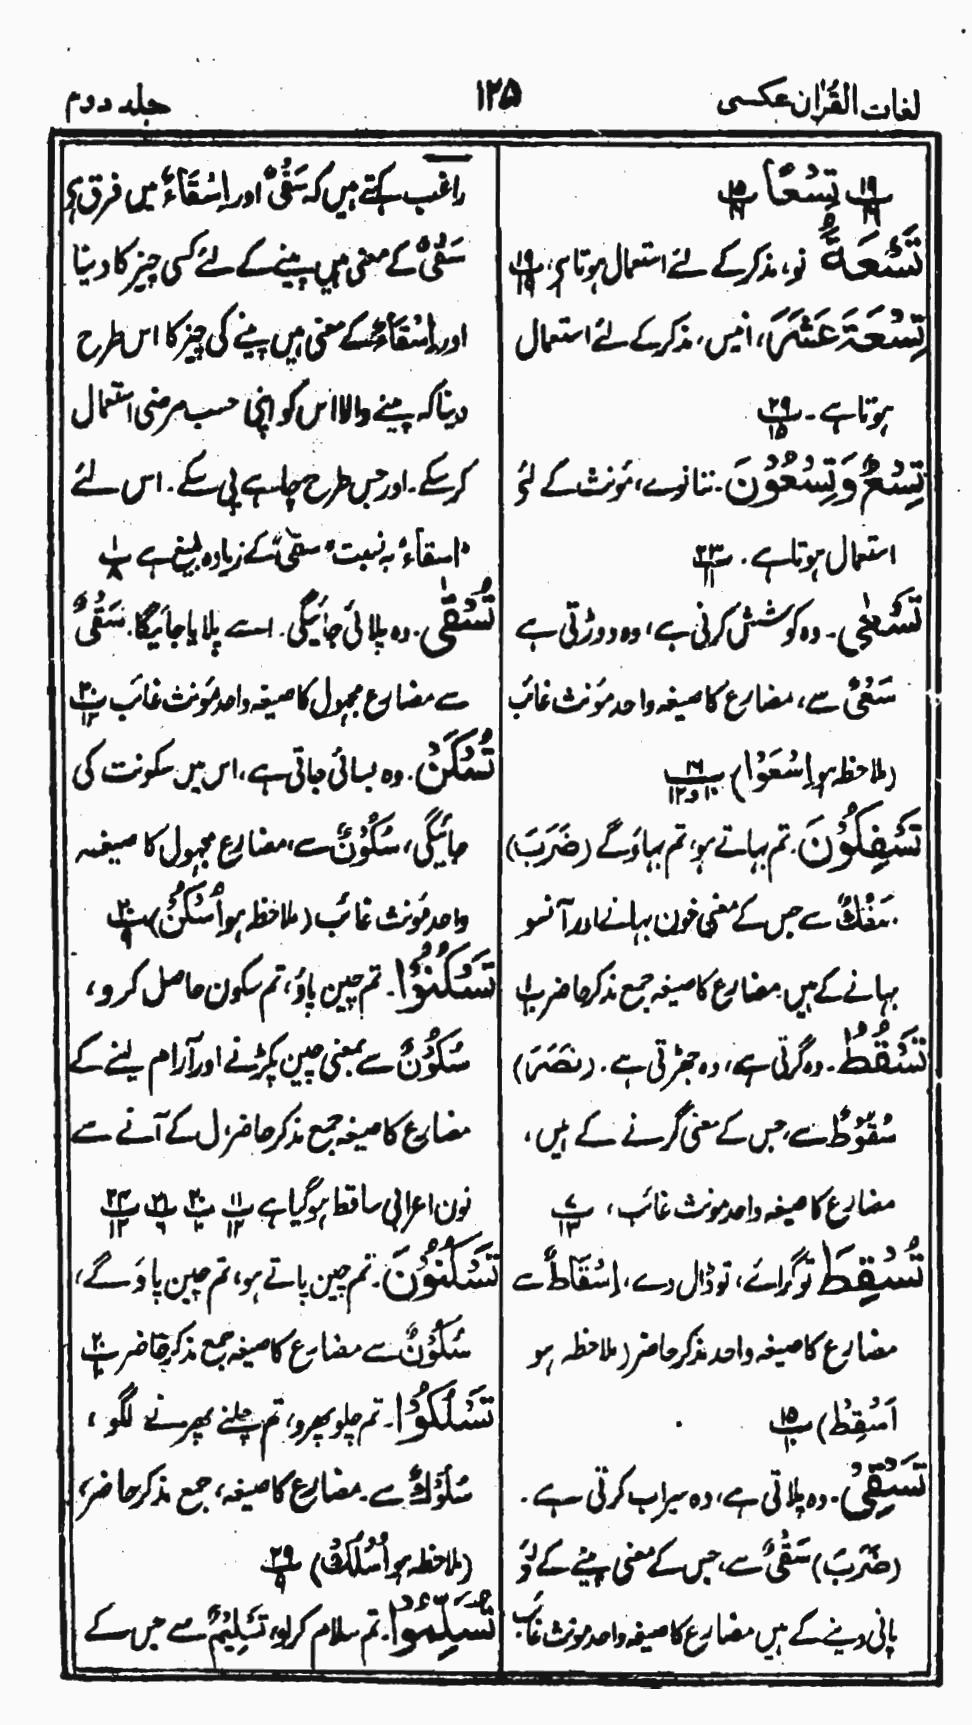 لغات القرآن عکسی
۱۲۵
جلد دوم
تِسْعًا
تِسْعَةٌ نو، مذکر کے لئے استعمال ہوتا ہے،
تِسْعَةَ عَشَرَ، انیس، مذکر کے لئے استعمال
ہوتا ہے۔ ۲۹/۱۵
تِسْعٌ وَتِسْعُوْنَ۔ ننانوے، مؤنث کے لئے
استعمال ہوتا ہے۔ ۲۳/۱۱
تَسْعٰى۔ وہ کوشش کرتی ہے، وہ دوڑتی ہے
سَعْیٌ سے، مضارع کا صیغہ واحد مؤنث غائب
(ملاحظہ ہو اِسْعَوْا) ۱۶/۱۰ و ۱۲
تَسْفِكُوْنَ۔ تم بہاتے ہو، تم بہاؤ گے (ضَرَبَ)
سَفْكٌ سے جس کے معنی خون بہانے اور آنسو
بہانے کے ہیں۔ مضارع کا صیغہ جمع مذکر حاضر
تَسْقُطُ۔ وہ گرتی ہے، وہ جھڑتی ہے۔ (نَصَرَ)
سُقُوْطٌ سے، جس کے معنی گرنے کے ہیں،
مضارع کا صیغہ واحد مونث غائب، ۷/۱۳
تُسْقِطَ تو گرائے، تو ڈال دے، اِسْقَاطٌ سے
مضارع کا صیغہ واحد مذکر حاضر (ملاحظہ ہو
اَسْقِطْ) ۱۵/۱۰
تَسْقِیْ۔ وہ پلاتی ہے، وہ سیراب کرتی ہے۔
(ضَرَبَ) سَقْیٌ سے، جس کے معنی پینے کے لئے
پانی دینے کے ہیں مضارع کا صیغہ واحد مونث غائب
راغب کہتے ہیں کہ سَقْیٌ اور اِسْقَاءٌ میں فرق ہے
سَقْیٌ کے معنی ہیں پینے کے لئے کسی چیز کا دینا
اور اِسْقَاءٌ کے معنی ہیں پینے کی چیز کا اس طرح
دینا کہ پینے والا اس کو اپنی حسب مرضی استعمال
کر سکے۔ اور جس طرح چاہے پی سکے۔ اس لئے
"اسقاء" بہ نسبت "سقی" کے زیادہ بلیغ ہے ۱/۸
تُسْقٰى۔ وہ پلائی جائیگی۔ اسے پلایا جائیگا۔ سَقْیٌ
سے مضارع مجہول کا صیغہ واحد مؤنث غائب ۳۰/۱۳
تُسْكَنْ۔ وہ بسائی جاتی ہے، اس میں سکونت کی
جائیگی، سُكُوْنٌ سے، مضارع مجہول کا صیغہ
واحد مؤنث غائب (ملاحظہ ہو اُسْكُنْ) ۲۰/۹
تَسْكُنُوْا۔ تم چین پاؤ، تم سکون حاصل کرو،
سُكُوْنٌ سے بمعنی چین پکڑنے اور آرام لینے کے
مضارع کا صیغہ جمع مذکر حاضر، ل کے آنے سے
نون اعرابی ساقط ہو گیا ہے ۱۱/۱۲ ۲۰/۱۰ ۲۱/۶ ۲۴/۱۲
تَسْكُنُوْنَ۔ تم چین پاتے ہو، تم چین پاؤ گے،
سُكُوْنٌ سے مضارع کا صیغہ جمع مذکر حاضر ۲۰/۱۰
تَسْلُكُوْا۔ تم چلو پھرو، تم چلنے پھرنے لگو،
سُلُوْكٌ سے۔ مضارع کا صیغہ، جمع مذکر حاضر،
(ملاحظہ ہو اُسْلُكْ) ۲۹/۹
تُسَلِّمُوْا۔ تم سلام کرلو، تَسْلِیْمٌ سے جس کے